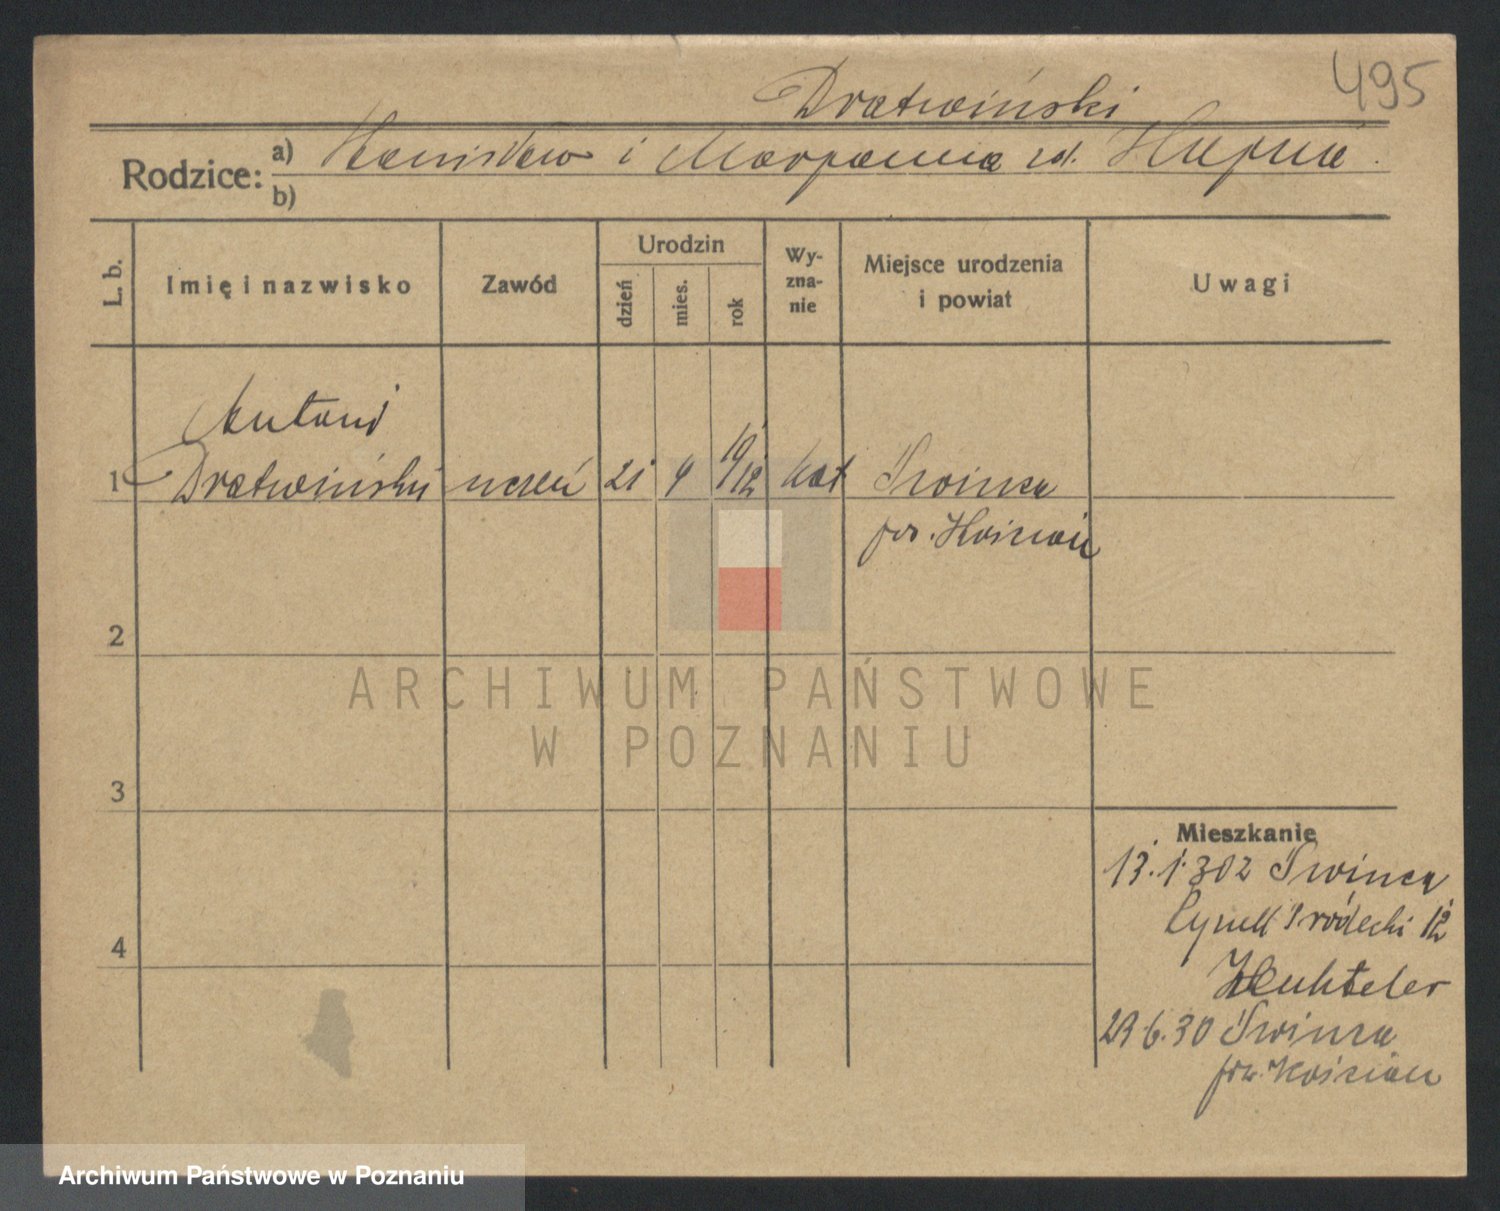 495
Dratwiński
Rodzice: a) Stanisław i Maryanna z d.
b)
L. b.
Imię i nazwisko
Zawód
Urodzin
dzień
mies.
rok
Wy-
zna-
nie
Miejsce urodzenia
i powiat
Uwagi
Antoni
1 Dratwiński uczeń 21 4 19/12 kat Świńca
pw. Kościan
2
3
4
Mieszkanie
Świńca
Rynek Śródecki 12
29.6.30 Świńca
pw. Kościan
ARCHIWUM PAŃSTWOWE
W POZNANIU
Archiwum Państwowe w Poznaniu